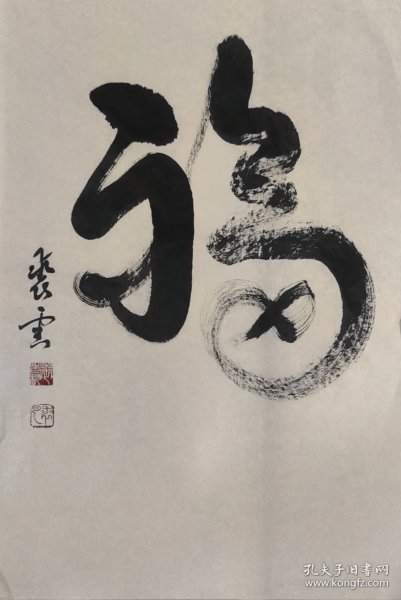 福
裘云
孔夫子旧书网
www.kongfz.com